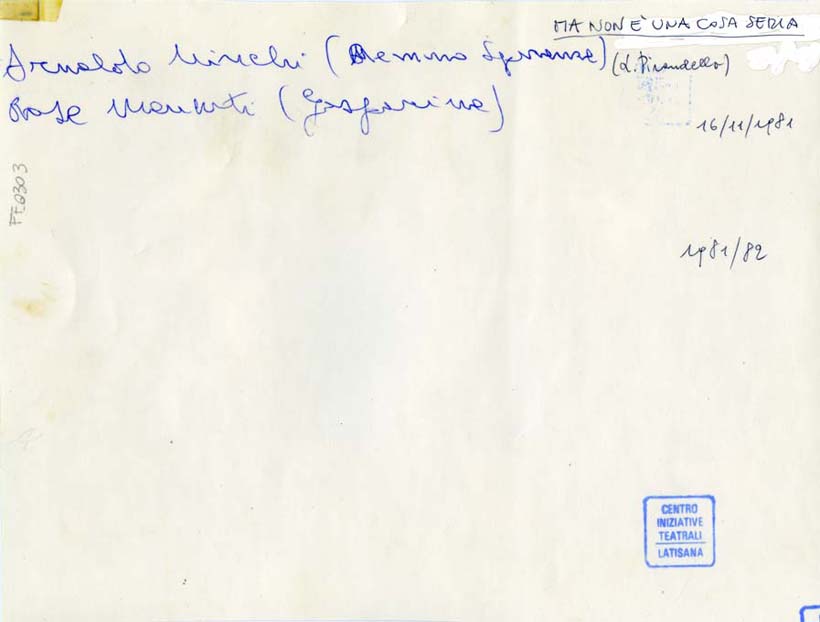 MA NON È UNA COSA SERIA
Arnaldo Ninchi (Memmo Speranza) (L. Pirandello)
Rosa Manenti (Gasparina)
16/11/1981
FF0303
1981/82
CENTRO
INIZIATIVE
TEATRALI
LATISANA